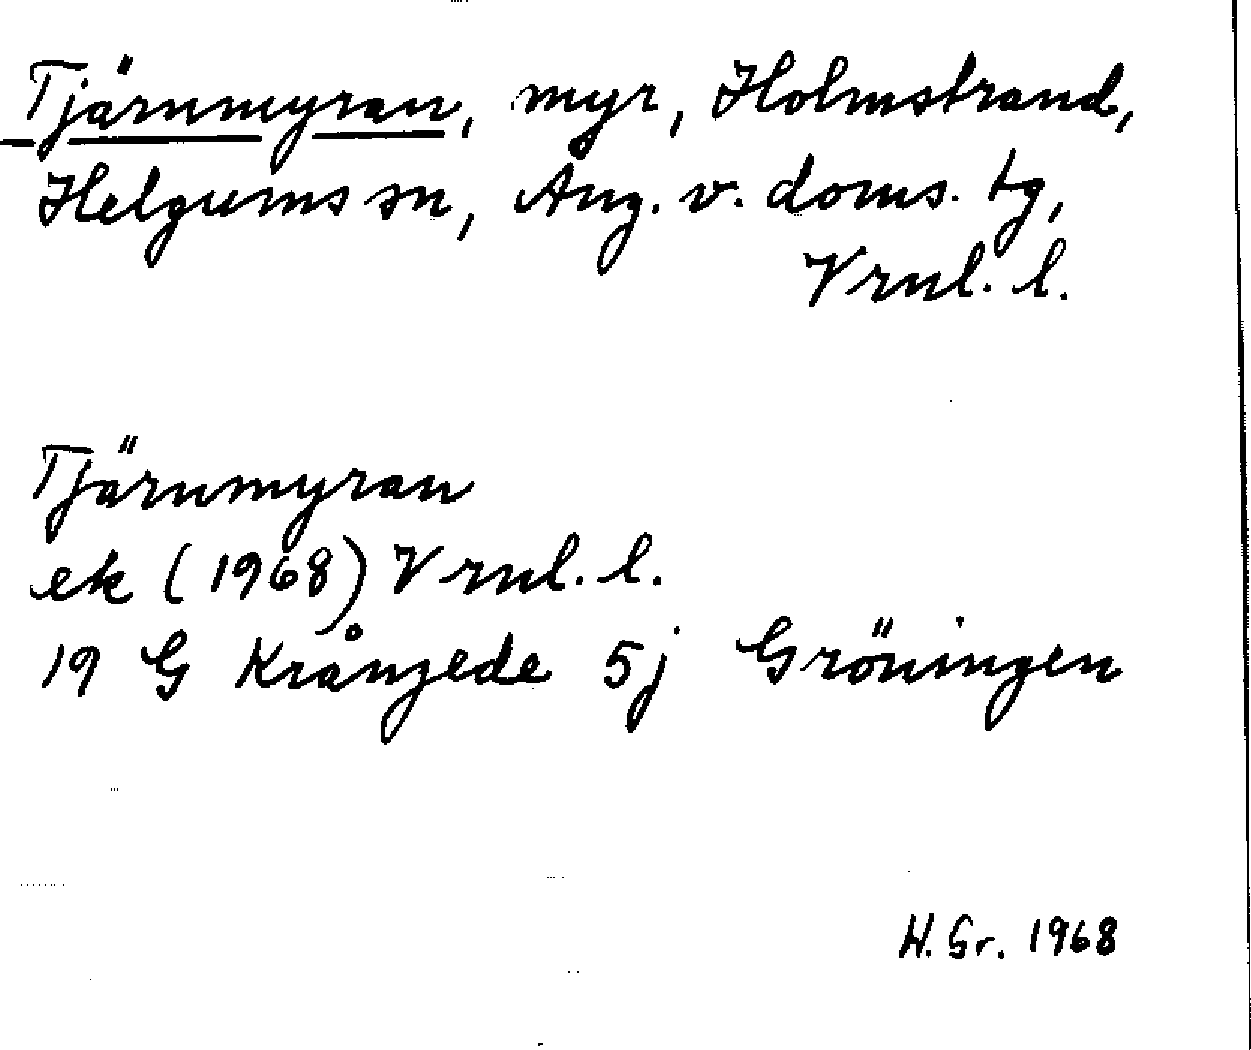 Tjärnmyran, myr, Holmstrand,
Helgums sn, Ång. v. doms. tg,
Vrnl. l.
Tjärnmyran
ek (1968) Vrnl. l.
19 G Krångede 5j Gröningen
H. Gr. 1968